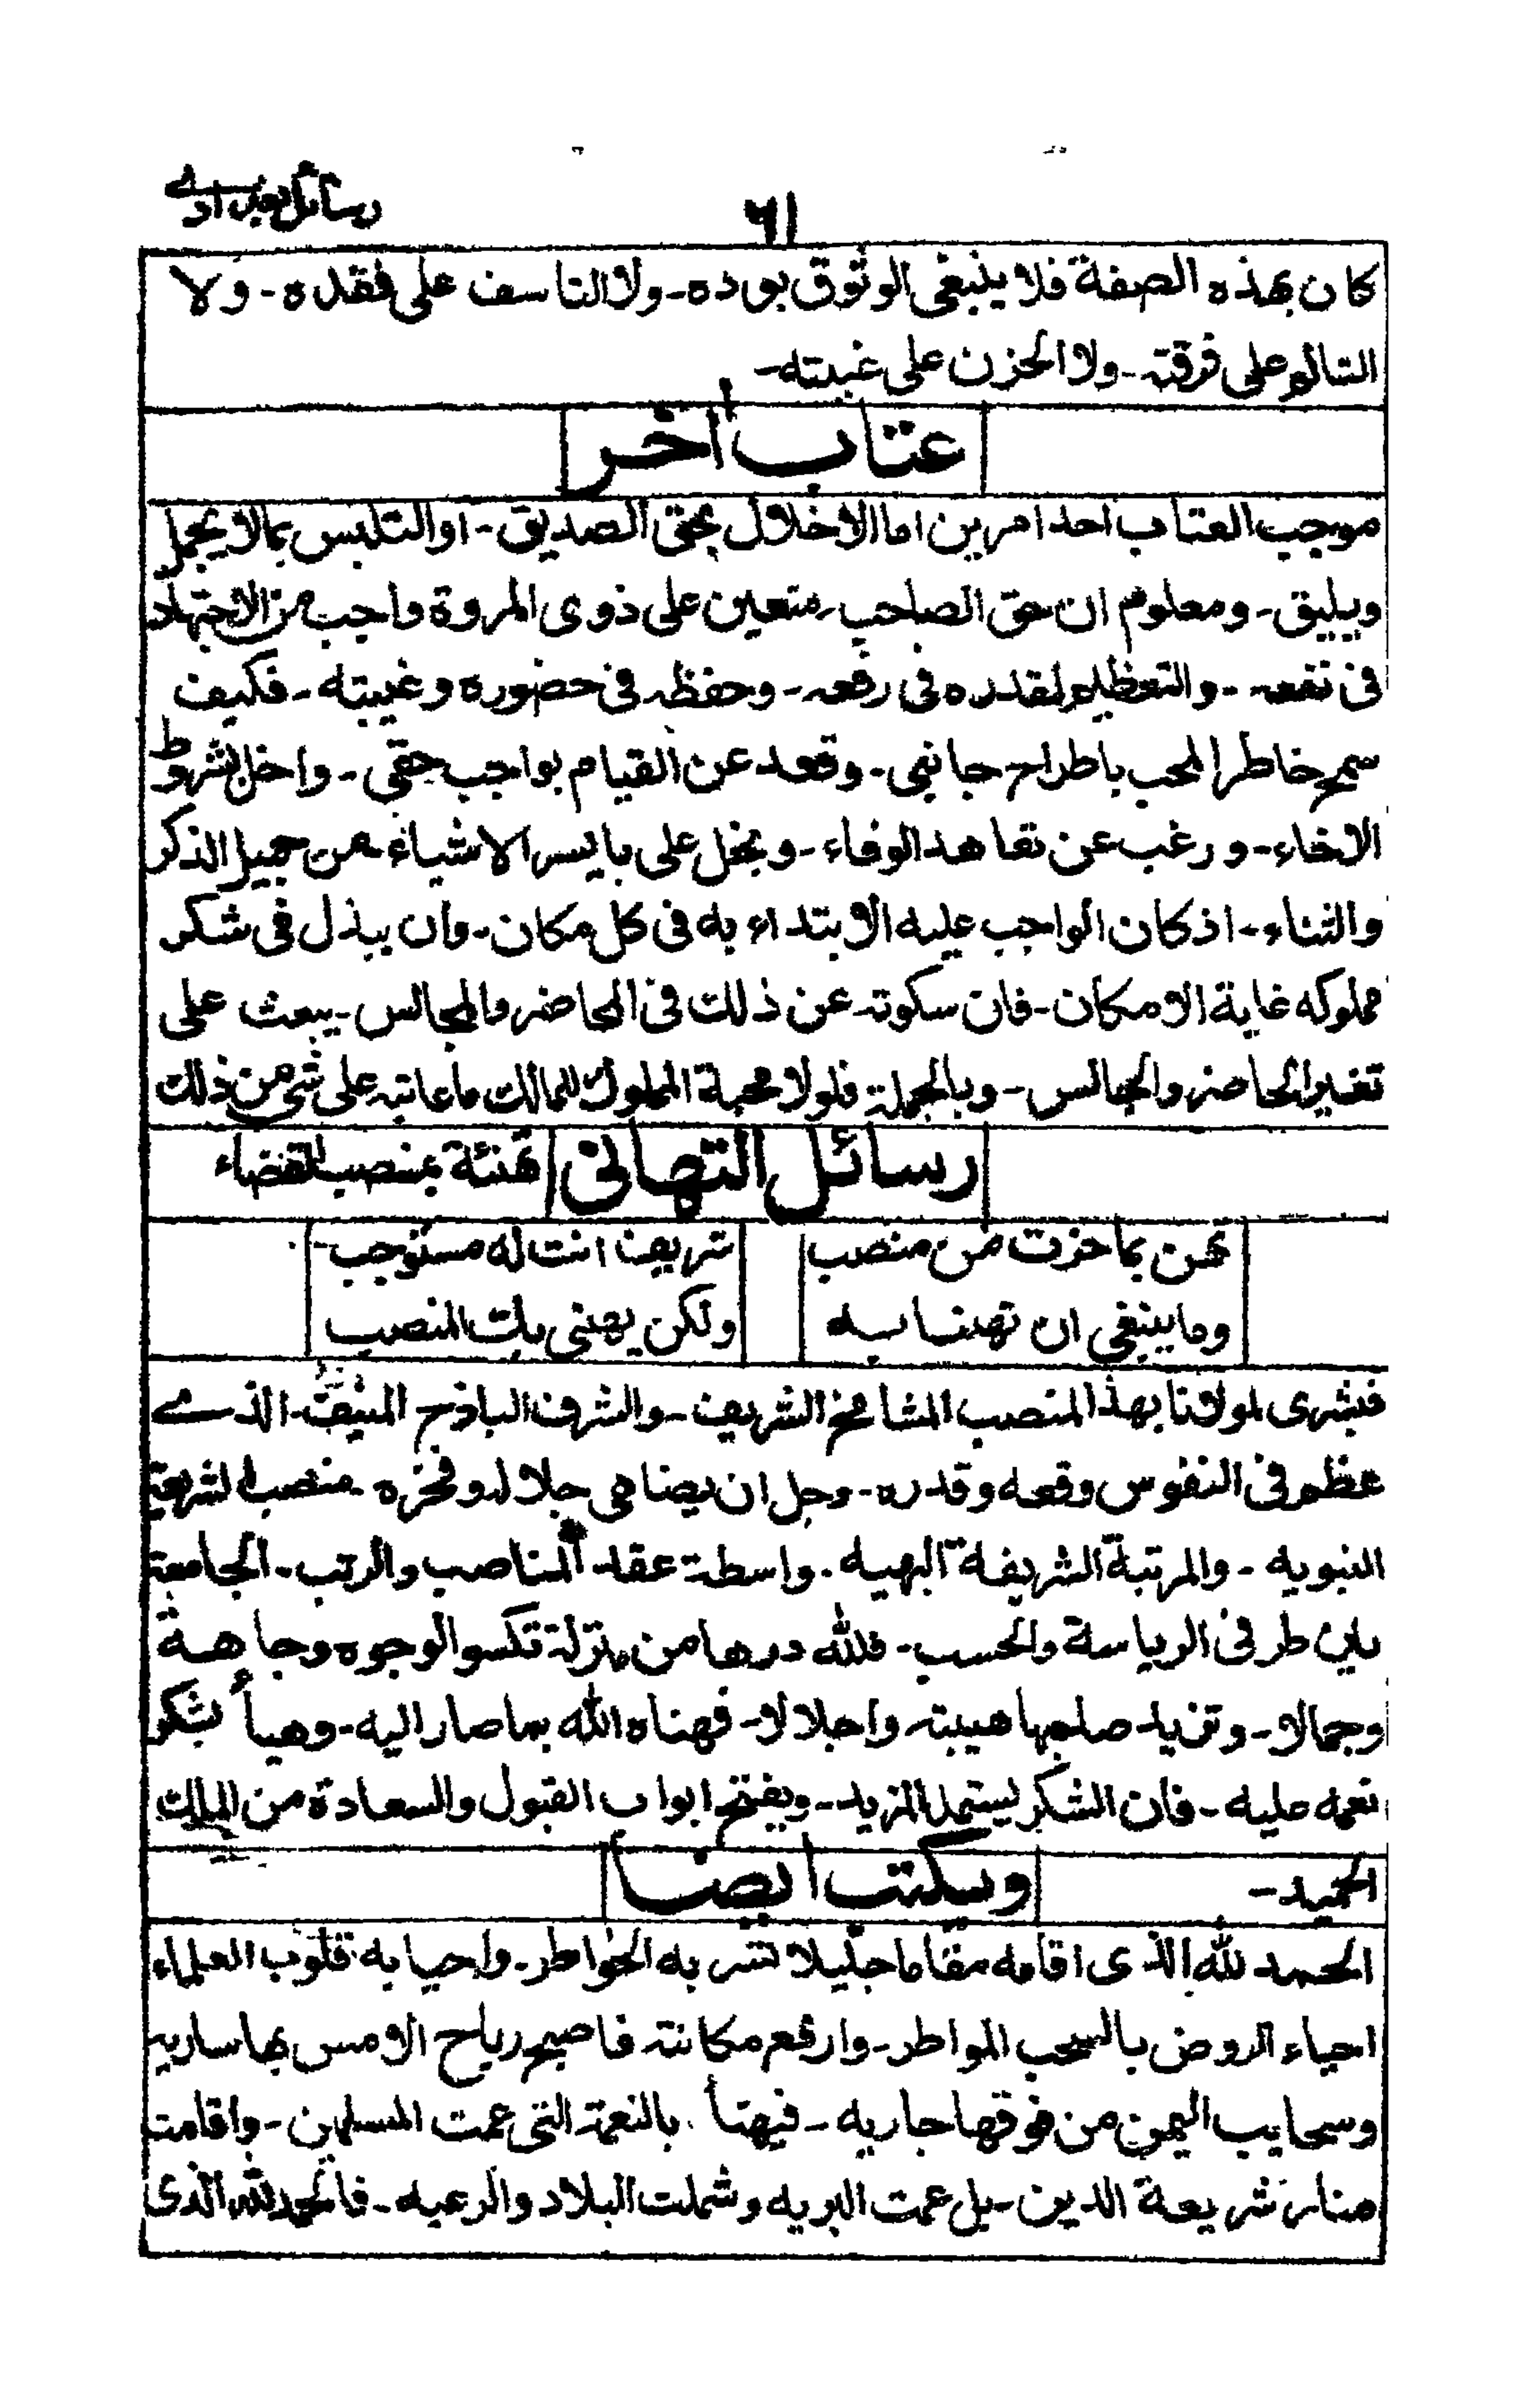 رسائل بغدادے
٦١
كان بهذه الصفة فلا ينبغى الوثوق بوده - ولا التاسف على فقده - ولا
التالم على فرقته - ولا الحزن على غيبته -
عتاب أخر
موجب العتاب احد امرين اما الاخلال بحق الصديق - او التلبس بما لا يجمل
ويليق - ومعلوم ان حق الصاحب متعين على ذوى المروة واجب من الاجتهاد
فى نفعه - والتعظيم لقدره فى رفعه - وحفظه فى حضوره وغيبته - فكيف
سمح خاطر المحب باطراح جانبى - وقعد عن القيام بواجب حقى - واخل بشروط
الاخاء - ورغب عن تعاهد الوفاء - وبخل على بايسر الاشياء من جميل الذكر
والثناء - اذ كان الواجب عليه الابتداء به فى كل مكان - وان يبذل فى شكر
مملوكه غاية الامكان - فان سكوته عن ذلك فى المحاضر والمجالس - يبعث على
تغير الحاضر والجالس - وبالجملة فلولا محبة المملوك للمالك ما عاتبه على شى من ذلك
رسائل التهانى
تهنئة بمنصب القضاء
تهن بما حزت من منصب
شريف انت له مستوجب -
وما ينبغى ان تهنا به
ولكن يهنى بك المنصب
فبشرى لمولانا بهذا المنصب الشامخ الشريف - والشرف الباذخ المنيف - الذے
عظم فى النفوس وقعه وقدره - وجل ان يضاهى جلاله وفخره منصب الشريعة
النبويه - والمرتبة الشريفة البهيه . واسطة عقد المناصب والرتب - الجامعة
بين طرفى الرياسة والحسب - فلله درها من منزلة تكسو الوجوه وجاهة
وجمالا - وتزيد صاحبها هيبته واجلالا - فهناه الله بما صار اليه - وهيأ بشكر
نعمه عليه - فان الشكر يستمد المزيد - ويفتح ابواب القبول والسعادة من الملك
الحميد -
ويكتب ايضا
الحمد لله الذى اقامه مقاما جليلا تسر به الخواطر - واحيا به قلوب العلماء
احياء الروض بالسحب المواطر - وارفع مكانته فاصبح رياح الامس بها ساريه
وسحايب اليمن من فوقها جاريه - فيهنأ بالنعمة التى عمت المسلمين - واقامت
منار شريعة الدين - بل عمت البريه وشملت البلاد والرعيه - فالحمد لله الذى